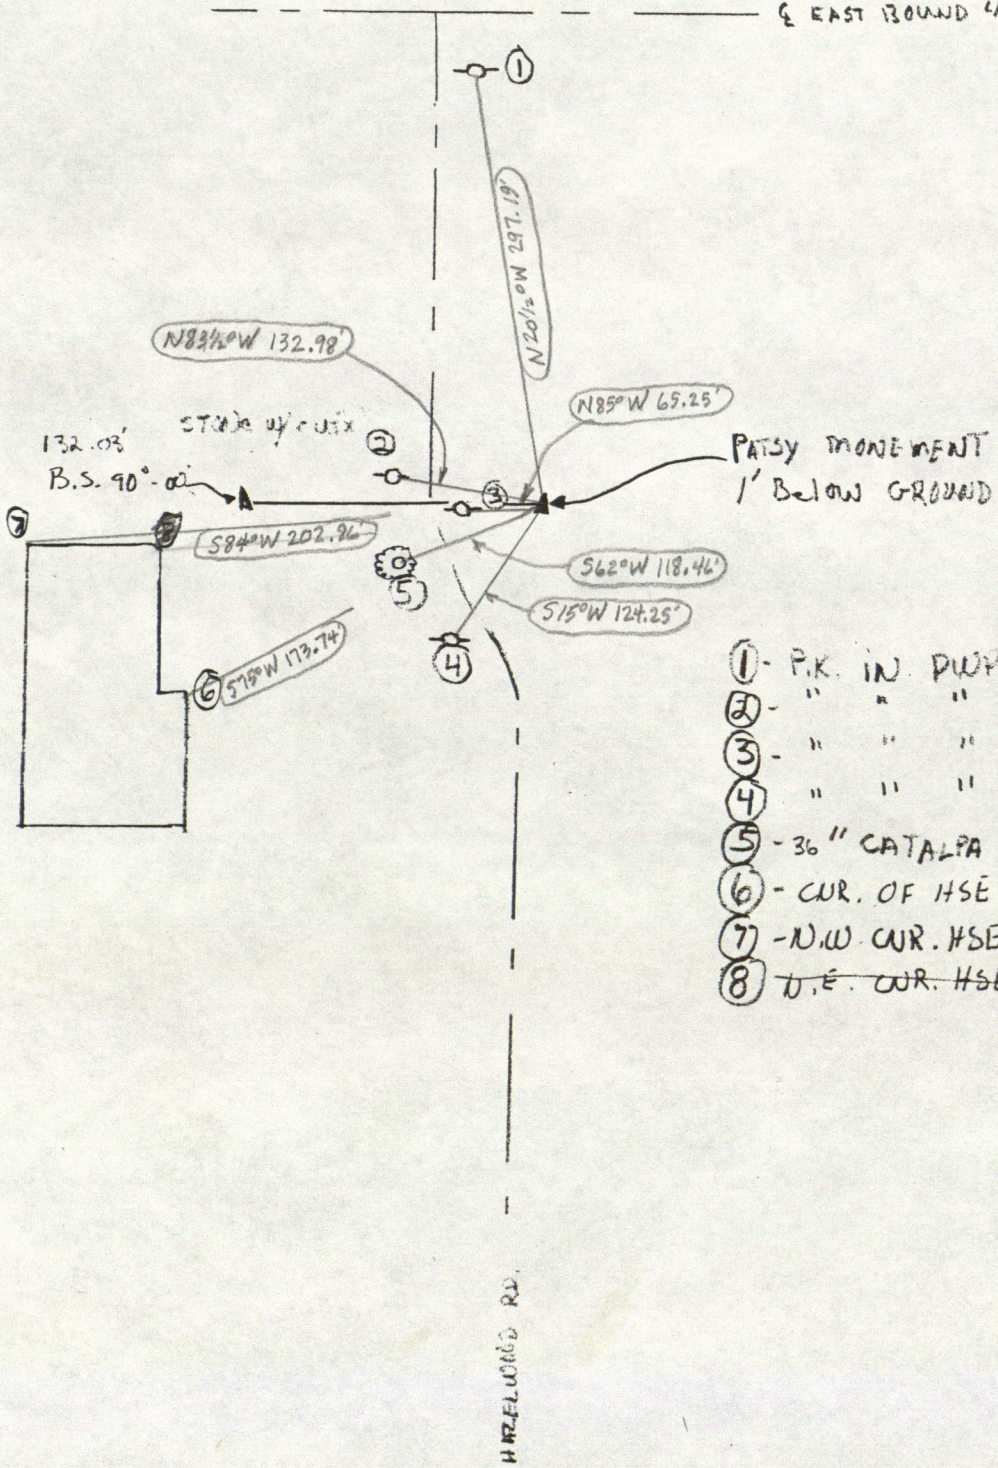 ℄ EAST BOUND
①
N20½°W 297.19'
N83½°W 132.98'
N85°W 65.25'
STONE W/ CUT X
②
132.03'
B.S. 90°-00'
③
PATSY MONEMENT
1' BELOW GROUND
⑦
⑧
S84°W 202.86'
S62°W 118.46'
⑤
S15°W 124.25'
④
⑥
S75°W 173.74'
① - P.K. IN PWP
② - " " "
③ - " " "
④ " " "
⑤ - 36" CATALPA
⑥ - CNR. OF HSE
⑦ - N.W CNR. HSE
⑧ N.E. CNR. HSE
HAZELWOOD RD.